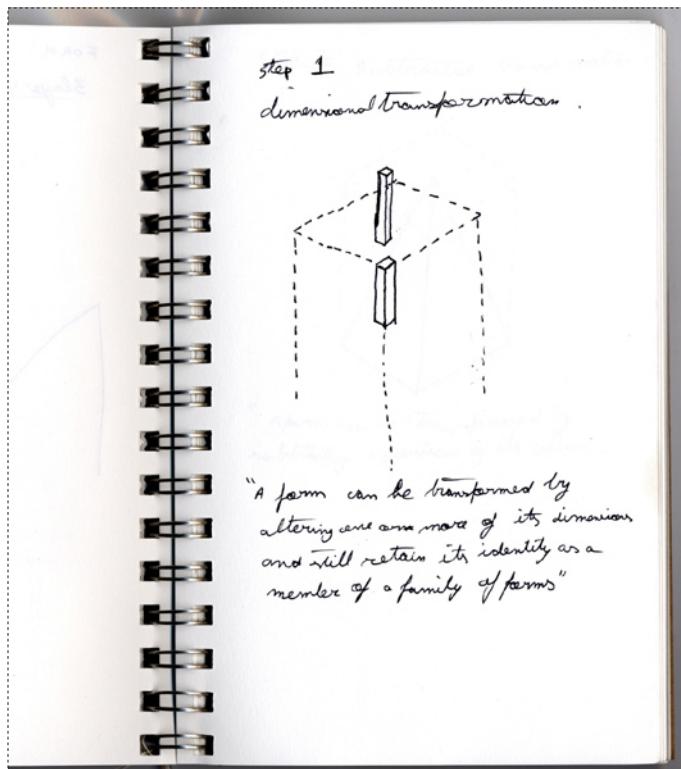 FORM
step 1
dimensional transformation .
"A form can be transformed by
altering one or more of its dimensions
and still retain its identity as a
member of a family of forms"